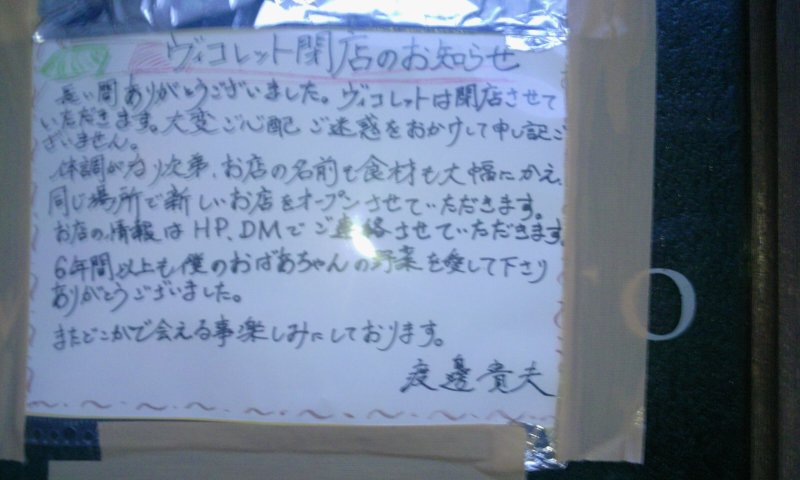 ヴィコレット閉店のお知らせ
長い間ありがとうございました。ヴィコレットは閉店させて
いただきます。大変ご心配ご迷惑をおかけして申し訳ご
ざいません。
体調がなり次第、お店の名前も食材も大幅にかえ、
同じ場所で新しいお店をオープンさせていただきます。
お店の情報はHP、DMでご連絡させていただきます。
6年間以上も僕のおばあちゃんの野菜を愛して下さり
ありがとうございました。
またどこかで会える事楽しみにしております。
渡邊貴夫
O